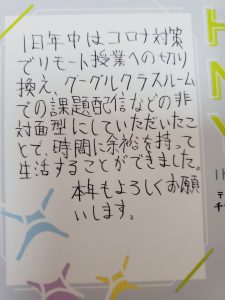 旧年中はコロナ対策
でリモート授業への切り
換え、グーグルクラスルーム
での課題配信などの非
対面型にしていただいたこ
とで、時間に余裕を持って
生活することができました。
本年もよろしくお願
いします。
H
N
Y
〒